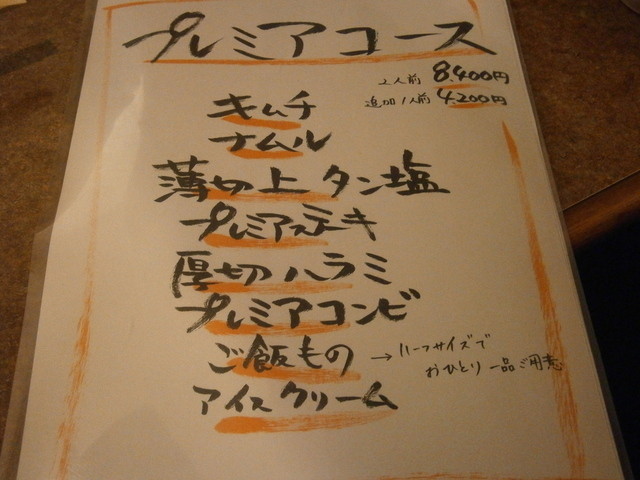 プレミアコース
2人前 8,400円
追加1人前 4,200円
キムチ
ナムル
薄切上タン塩
プレミアステキ
厚切ハラミ
プレミアコンビ
ご飯もの → ハーフサイズで
おひとり一品ご用意
アイスクリーム